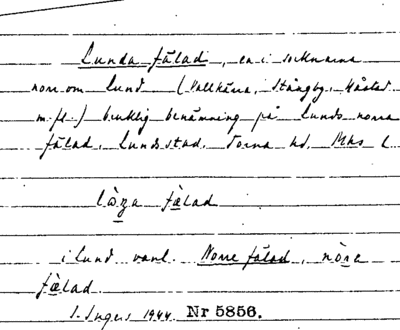 Lunda fälad, en i socknarna
norr om Lund (Vallkärra, Stångby, Håstad
m.fl.) bruklig benämning på Lunds norra
fälad, Lunds stad, Torna hd, Mhs l.
fälad
i Lund vanl. Norre fälad, nòre
fælad.
I. Ingers 1944. Nr 5856.